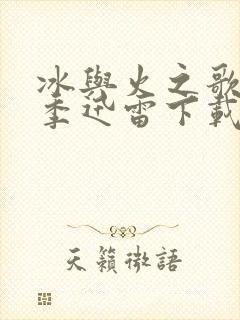 冰與火之歌
季迅雷下載
天籟微語